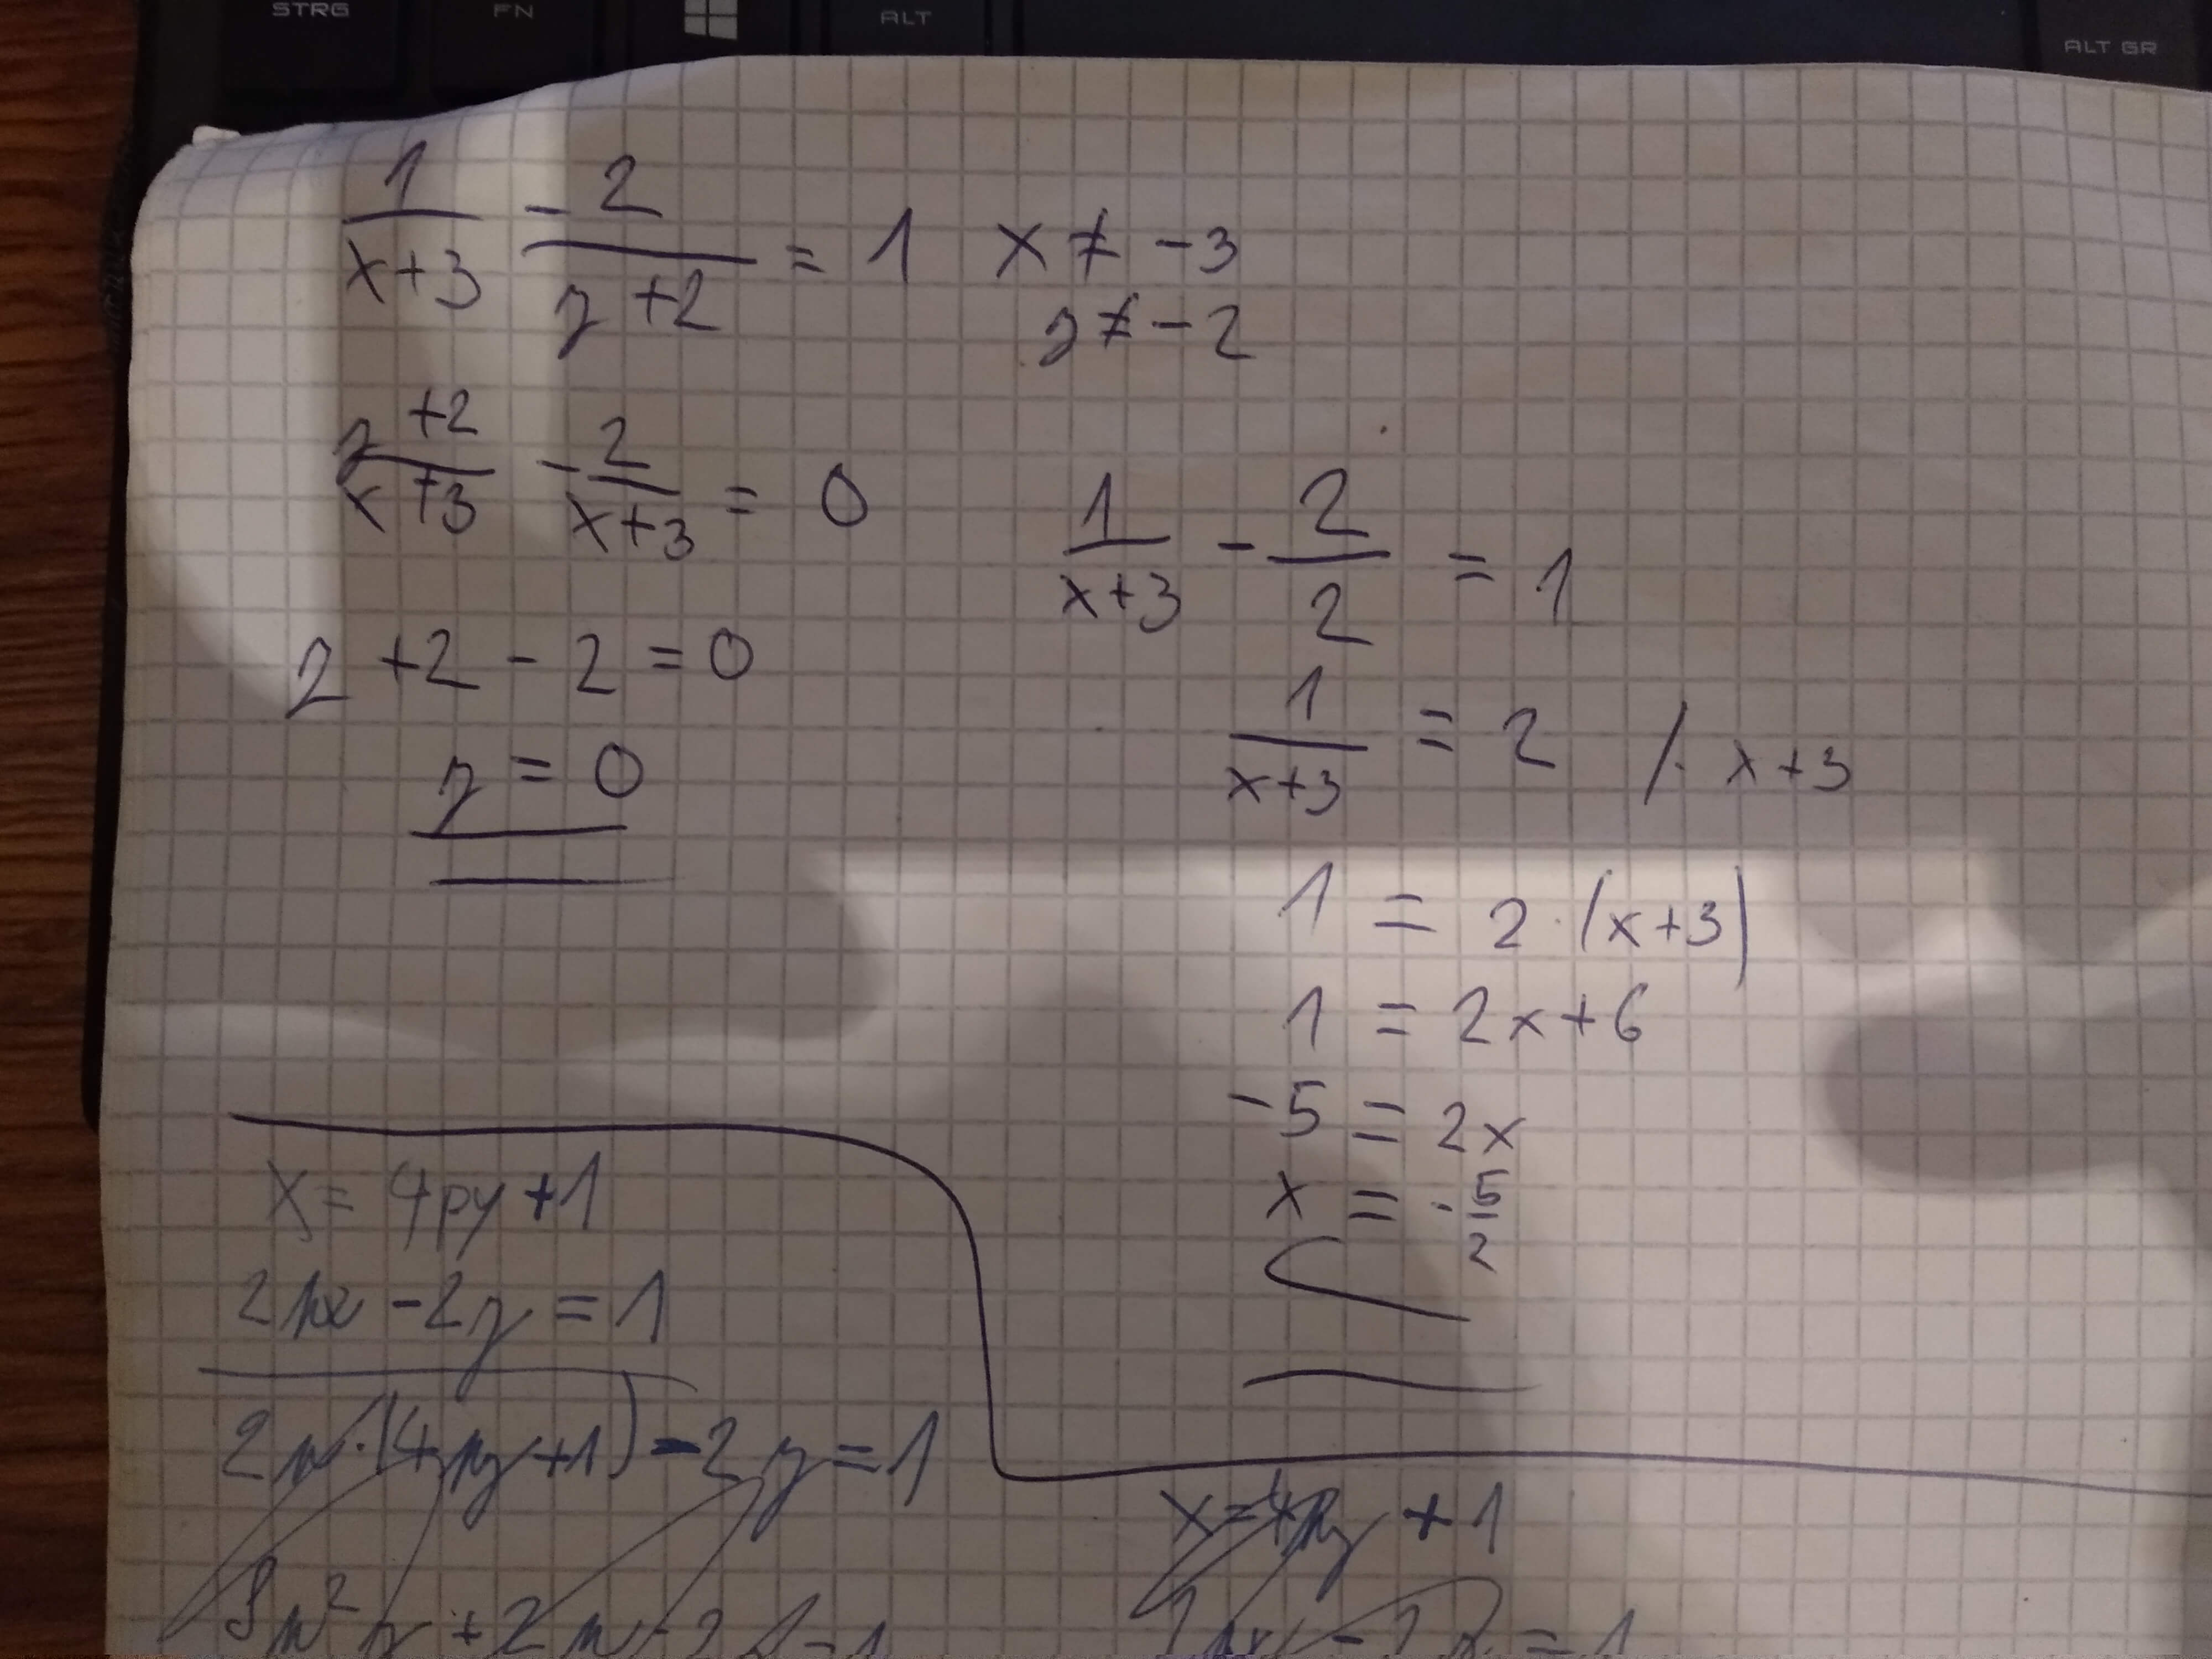 STRG FN ALT ALT GR
1/(x+3) - 2/(y+2) = 1 x ≠ -3
y ≠ -2
(y+2)/(x+3) - 2/(x+3) = 0
y + 2 - 2 = 0
y = 0
1/(x+3) - 2/2 = 1
1/(x+3) = 2 / · x+3
1 = 2 · (x+3)
1 = 2x + 6
-5 = 2x
x = -5/2
x = 4py + 1
2px - 2y = 1
2p · (4py + 1) - 2y = 1
8p² y + 2p - 2y = 1
x = 4py + 1
2px - 2y = 1